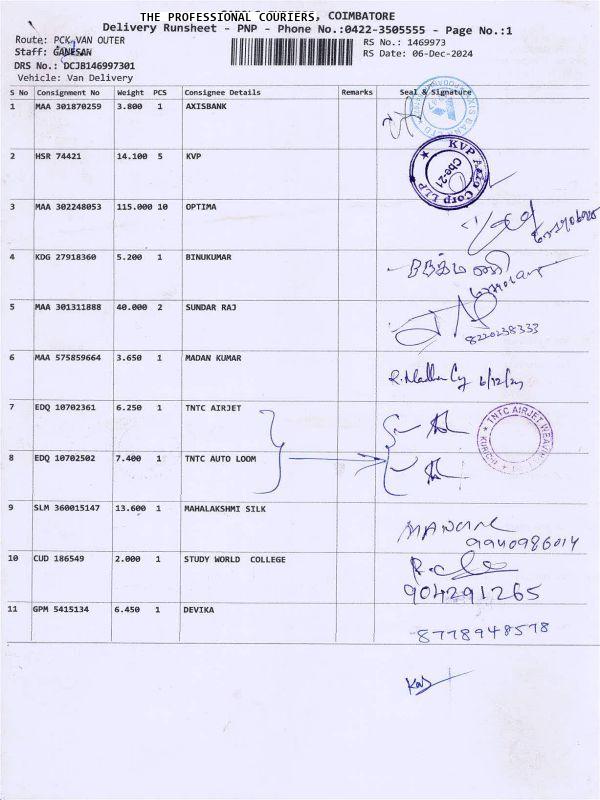 THE PROFESSIONAL COURIERS, COIMBATORE
Delivery Runsheet - PNP - Phone No.:0422-3505555 - Page No.:1
Route: PCK VAN OUTER
RS No.: 1469973
Staff: GANESAN
RS Date: 06-Dec-2024
DRS No.: DCJB146997301
Vehicle: Van Delivery
S No Consignment No Weight PCS Consignee Details Remarks Seal & Signature
1 MAA 301870259 3.800 1 AXISBANK
2 HSR 74421 14.100 5 KVP
KVP Auto Corp LLP
Cbe-21
3 MAA 302248053 115.000 10 OPTIMA
4 KDG 27918360 5.200 1 BINUKUMAR
5 MAA 301311888 40.000 2 SUNDAR RAJ
8220238333
6 MAA 575859664 3.650 1 MADAN KUMAR
6/12/24
7 EDQ 10702361 6.250 1 TNTC AIRJET
TNTC AIRJET
8 EDQ 10702502 7.400 1 TNTC AUTO LOOM
9 SLM 360015147 13.600 1 MAHALAKSHMI SILK
9940986014
10 CUD 186549 2.000 1 STUDY WORLD COLLEGE
904291265
11 GPM 5415134 6.450 1 DEVIKA
8778948578